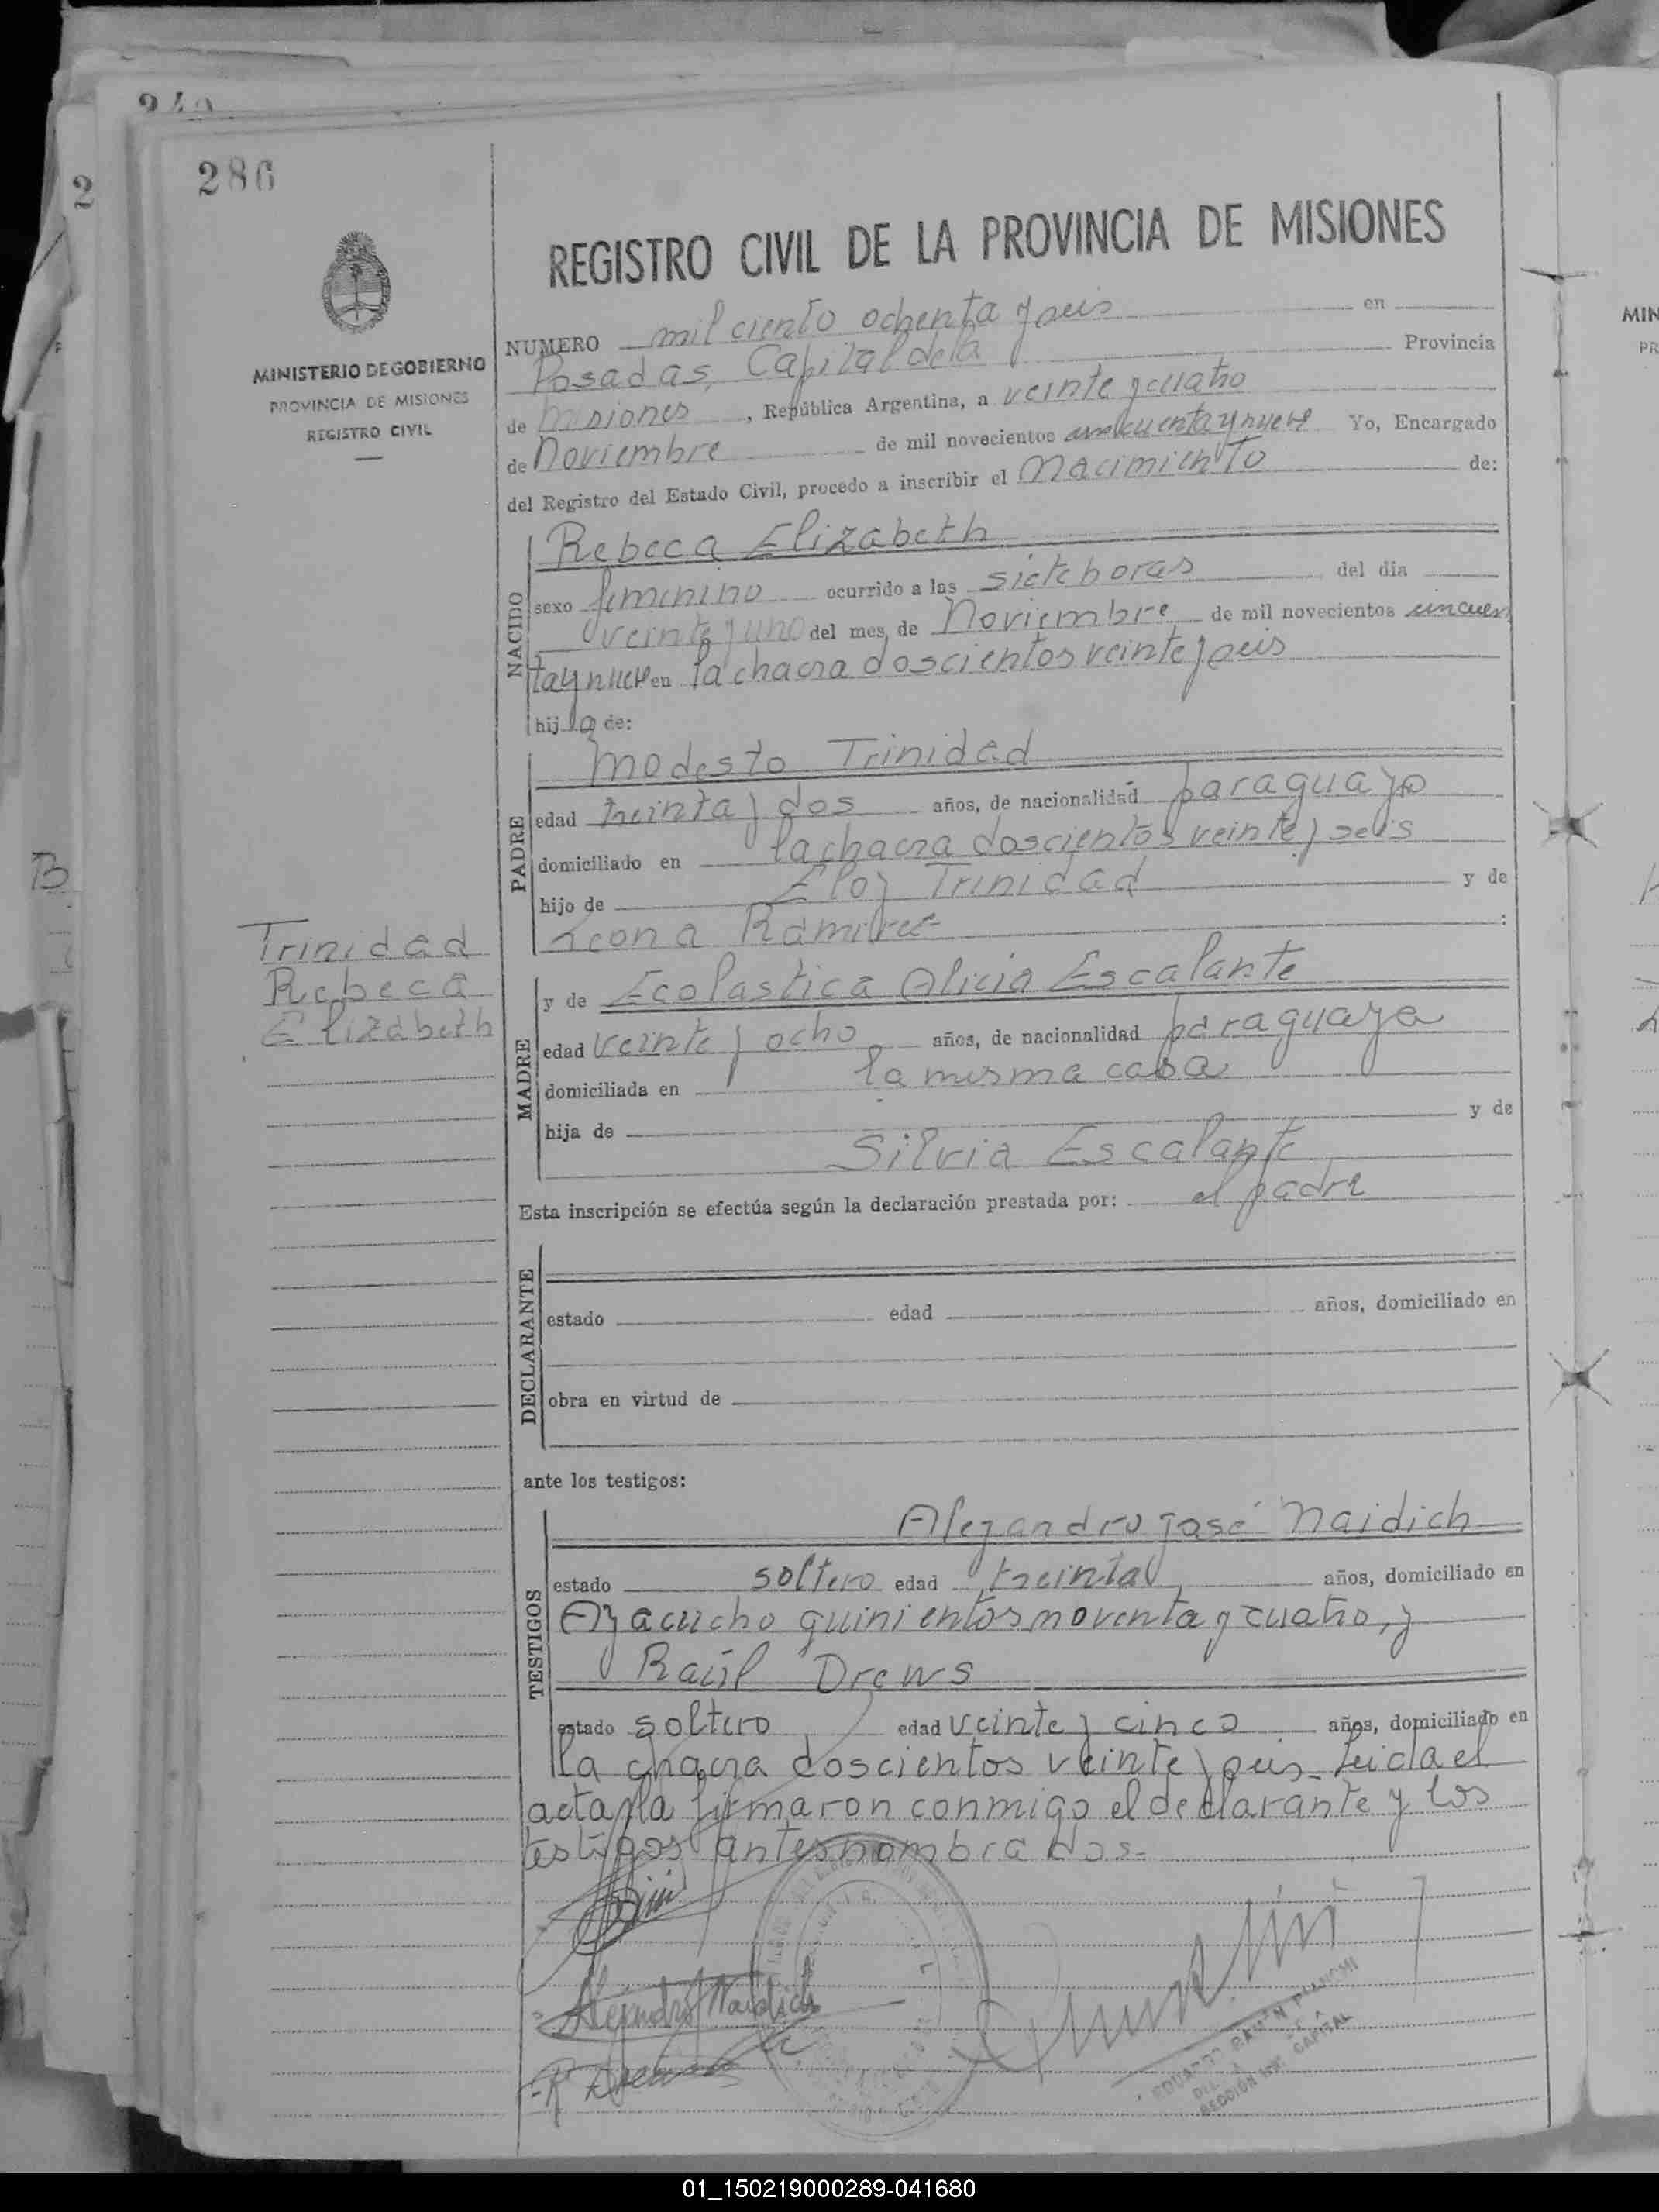 240
286
2
MINISTERIO DE GOBIERNO
PROVINCIA DE MISIONES
REGISTRO CIVIL
REGISTRO CIVIL DE LA PROVINCIA DE MISIONES
NUMERO mil ciento ochenta y seis en
Posadas, Capital de la Provincia
de Misiones, República Argentina, a veinte y cuatro
de Noviembre de mil novecientos cincuenta y nueve Yo, Encargado
del Registro del Estado Civil, procedo a inscribir el Nacimiento de:
NACIDO
Rebeca Elizabeth
sexo femenino ocurrido a las siete horas del día
veinte y uno del mes de Noviembre de mil novecientos cincuen
ta y nueve en la chacra doscientos veinte y seis
hija de:
PADRE
Modesto Trinidad
edad treinta y dos años, de nacionalidad paraguayo
domiciliado en la chacra doscientos veinte y seis
hijo de Eloy Trinidad y de
Leona Ramirez :
Trinidad
Rebeca
Elizabeth
MADRE
y de Ecolastica Alicia Escalante
edad veinte y ocho años, de nacionalidad paraguaya
domiciliada en la misma casa
hija de y de
Silvia Escalante
Esta inscripción se efectúa según la declaración prestada por: el padre
DECLARANTE
estado edad años, domiciliado en
obra en virtud de
ante los testigos:
TESTIGOS
Alejandro José Naidich
estado soltero edad treinta años, domiciliado en
Ayacucho quinientos noventa y cuatro, y
Raúl Drews
estado soltero edad veinte y cinco años, domiciliado en
la chacra doscientos veinte y seis. Leida el
acta, la firmaron conmigo el declarante y los
testigos antes nombrados.
Alejandro Naidich
R Drews
EDUARDO RAMON
CAPITAL
B
MIN
PR
01_150219000289-041680